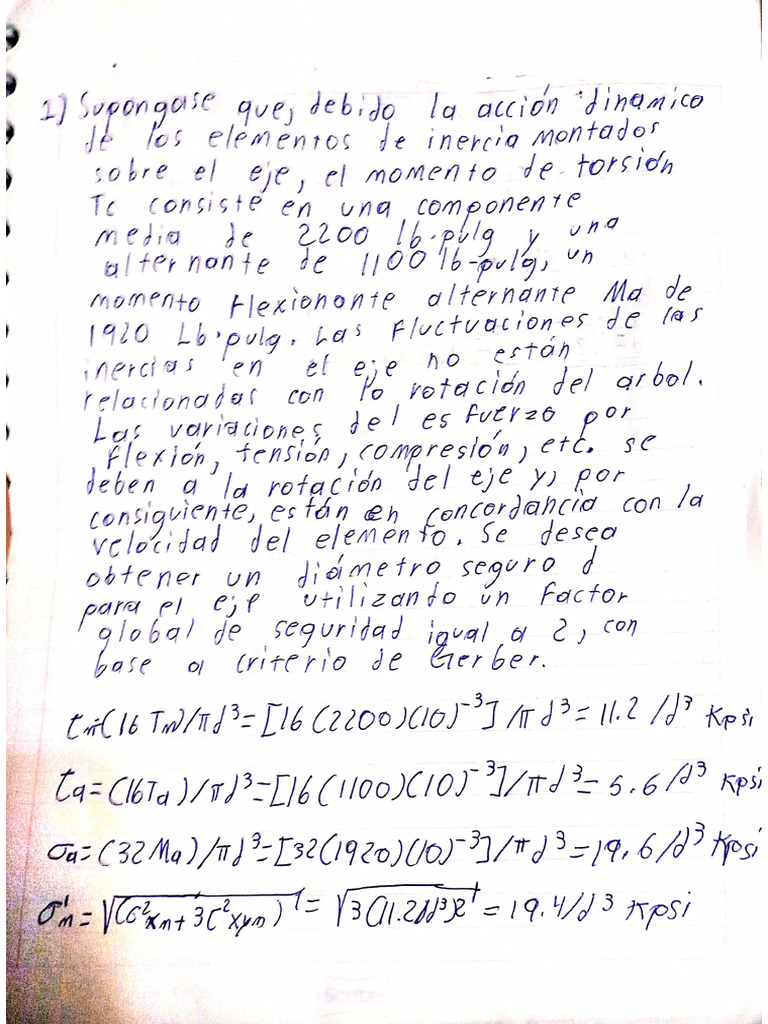 1) Supongase que, debido la acción dinamico
de los elementos de inercia montados
sobre el eje, el momento de torsión
Tc consiste en una componente
media de 2200 lb.pulg y una
alternante de 1100 lb-pulg, un
momento flexionante alternante Ma de
1920 Lb.pulg. Las fluctuaciones de las
inercias en el eje no están
relacionadas con lo rotación del arbol.
Las variaciones del esfuerzo por
flexión, tensión, compresión, etc. se
deben a la rotación del eje y, por
consiguiente, están en concordancia con la
velocidad del elemento. Se desea
obtener un diámetro seguro d
para el eje utilizando un Factor
global de seguridad igual a 2, con
base a criterio de Gerber.
τm=(16 Tm)/πd³=[16(2200)(10)⁻³]/πd³=11.2/d³ Kpsi
τa=(16Ta)/πd³=[16(1100)(10)⁻³]/πd³=5.6/d³ Kpsi
σa=(32Ma)/πd³=[32(1920)(10)⁻³]/πd³=19.6/d³ Kpsi
σ'm=√(σ²xm+3τ²xym)=√3(11.2/d³)2=19.4/d³ Kpsi